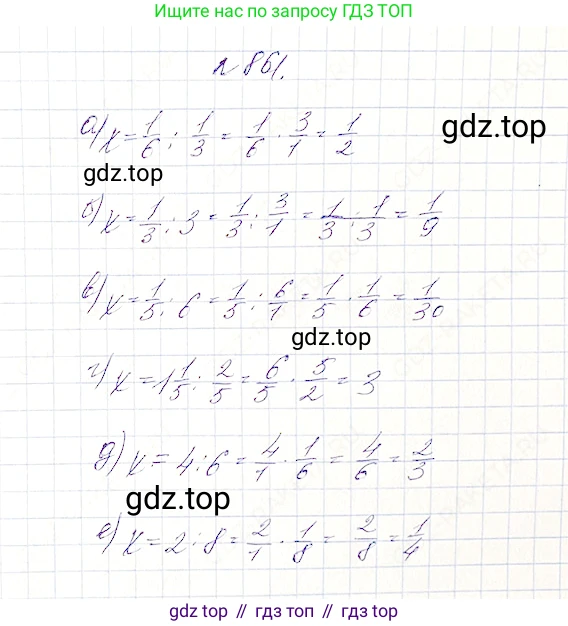 Ищите нас по запросу ГДЗ ТОП
№ 861.
а) x = 1/6 : 1/3 = 1/6 · 3/1 = 1/2
gdz.top
gdz.top
б) x = 1/3 : 3 = 1/3 : 3/1 = 1/3 · 1/3 = 1/9
в) x = 1/5 : 6 = 1/5 : 6/1 = 1/5 · 1/6 = 1/30
gdz.top
г) x = 1 1/5 : 2/5 = 6/5 · 5/2 = 3
д) x = 4 : 6 = 4/1 · 1/6 = 4/6 = 2/3
gdz.top
е) x = 2 : 8 = 2/1 · 1/8 = 2/8 = 1/4
gdz top // гдз топ // гдз.top